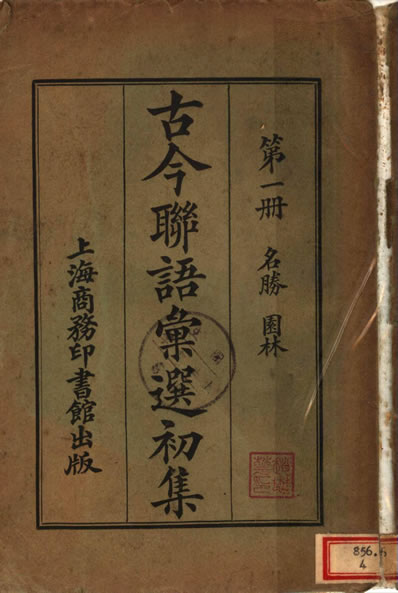 第一册　名勝　園林
古今聯語彙選初集
上海商務印書館出版
856.6
4